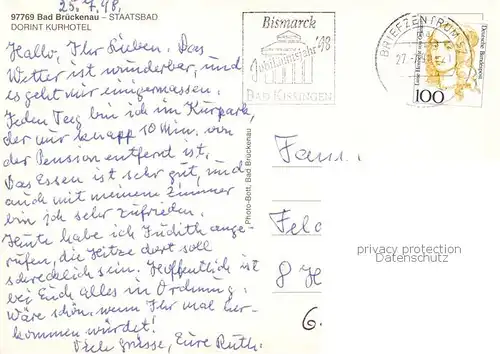 25.7.98,
97769 Bad Brückenau – STAATSBAD
DORINT KURHOTEL
Hallo, Ihr Lieben. Das
Wetter ist wunderbar, und
es geht mir einigermassen.
Jeden Tag bin ich im Kurpark,
der nur knapp 10 Min. von
der Pension entfernt ist.
Das Essen ist sehr gut, und
auch mit meinem Zimmer
bin ich sehr zufrieden.
Heute habe ich Judith ange-
rufen, die Hitze dort soll
schrecklich sein. Hoffentlich ist
bei Euch alles in Ordnung.
Wäre schön, wenn Ihr mal her-
kommen würdet!
Viele Grüsse, Eure Ruth.
Photo-Bott, Bad Brückenau
Bismarck
Jubiläumsjahr '98
BAD KISSINGEN
BRIEFZENTRUM
Deutsche Bundespost
100
Fam.
8 H
6
privacy protection
Datenschutz